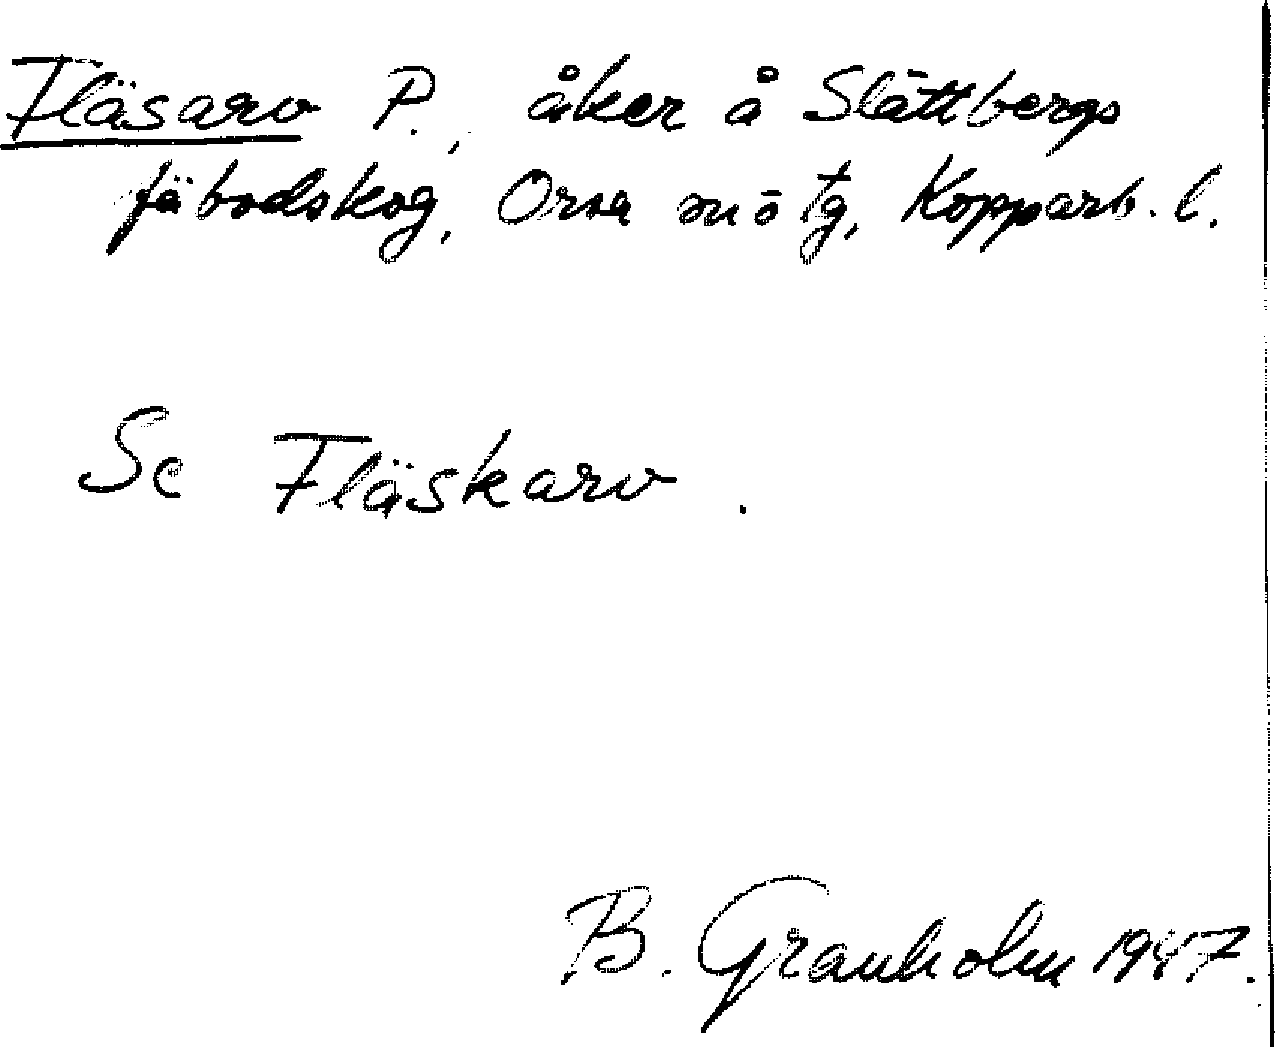 Fläsarv P., åker å Slättbergs
fäbodskog, Orsa sn o tg, Kopparb. l.
Se Fläskarv.
B. Granholm 1947.